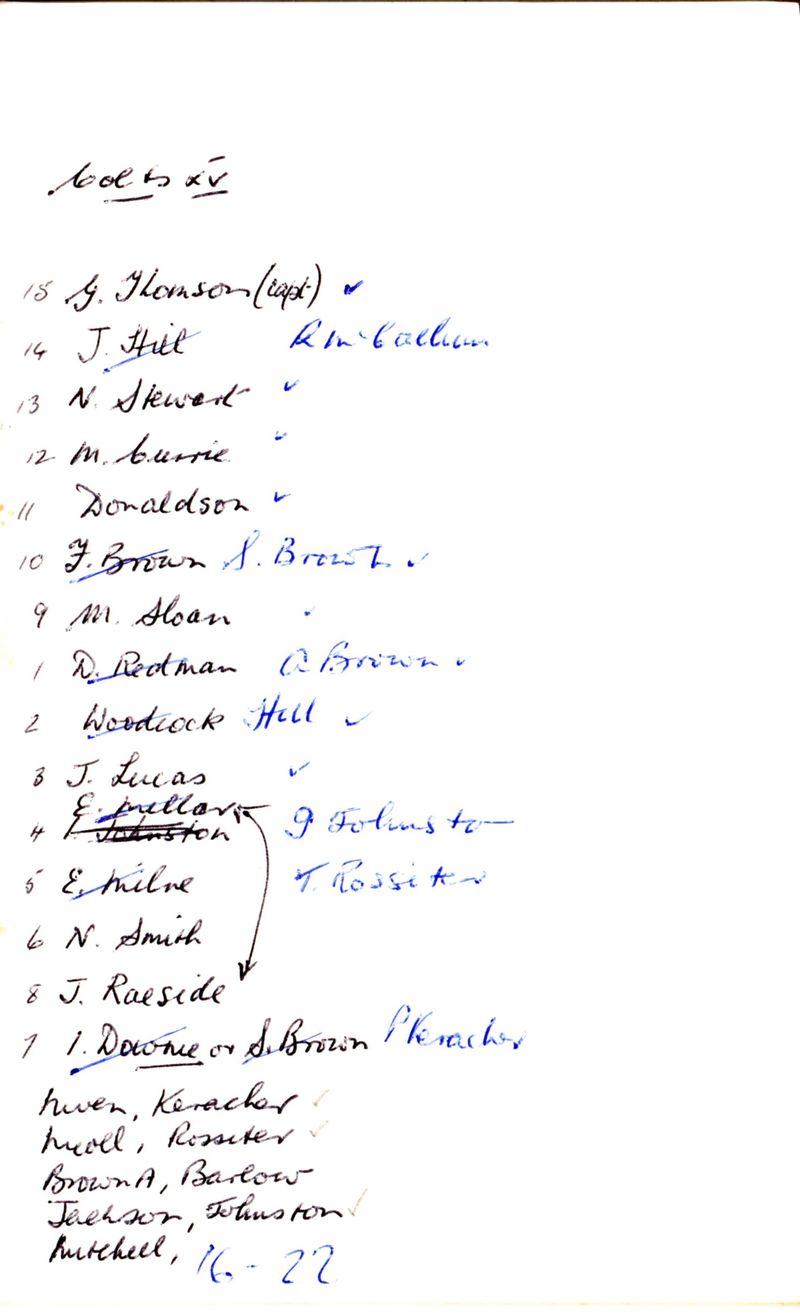 Colts XV
15 G. Thomson (capt) ✓
14 J. Hill R McCallum
13 N. Stewart ✓
12 M. Currie ✓
11 Donaldson ✓
10 F. Brown S. Brown ✓
9 M. Sloan ✓
1 D. Redman A Brown ✓
2 Woodcock Hill ✓
3 J. Lucas ✓
E. Millar
4 I Johnston P Johnston
5 E. Milne T. Rossiter
6 N. Smith
8 J. Raeside
7 I. Downie or S. Brown P Keracher
Niven, Keracher ✓
Nicoll, Rossiter ✓
Brown A, Barlow
Jackson, Johnston ✓
Mitchell, 16-22